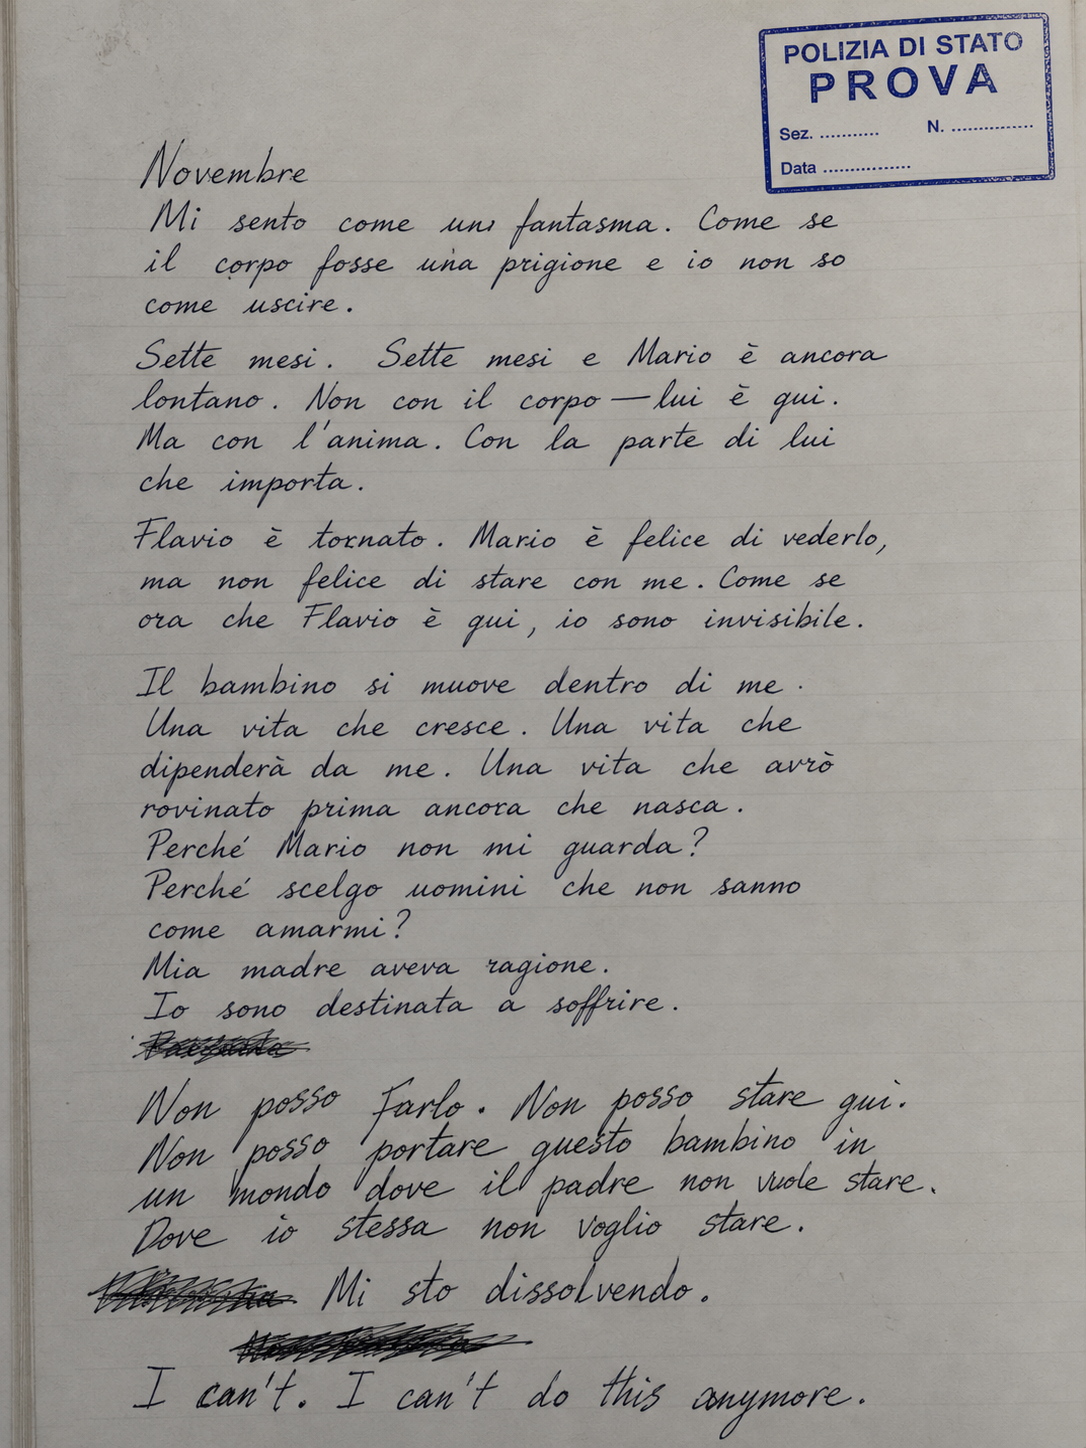 POLIZIA DI STATO
PROVA
Sez. ........... N. ...............
Data ................
Novembre
Mi sento come un fantasma. Come se
il corpo fosse una prigione e io non so
come uscire.
Sette mesi. Sette mesi e Mario è ancora
lontano. Non con il corpo — lui è qui.
Ma con l'anima. Con la parte di lui
che importa.
Flavio è tornato. Mario è felice di vederlo,
ma non felice di stare con me. Come se
ora che Flavio è qui, io sono invisibile.
Il bambino si muove dentro di me.
Una vita che cresce. Una vita che
dipenderà da me. Una vita che avrò
rovinato prima ancora che nasca.
Perché Mario non mi guarda?
Perché scelgo uomini che non sanno
come amarmi?
Mia madre aveva ragione.
Io sono destinata a soffrire.
Non posso farlo. Non posso stare qui.
Non posso portare questo bambino in
un mondo dove il padre non vuole stare.
Dove io stessa non voglio stare.
Mi sto dissolvendo.
I can't. I can't do this anymore.